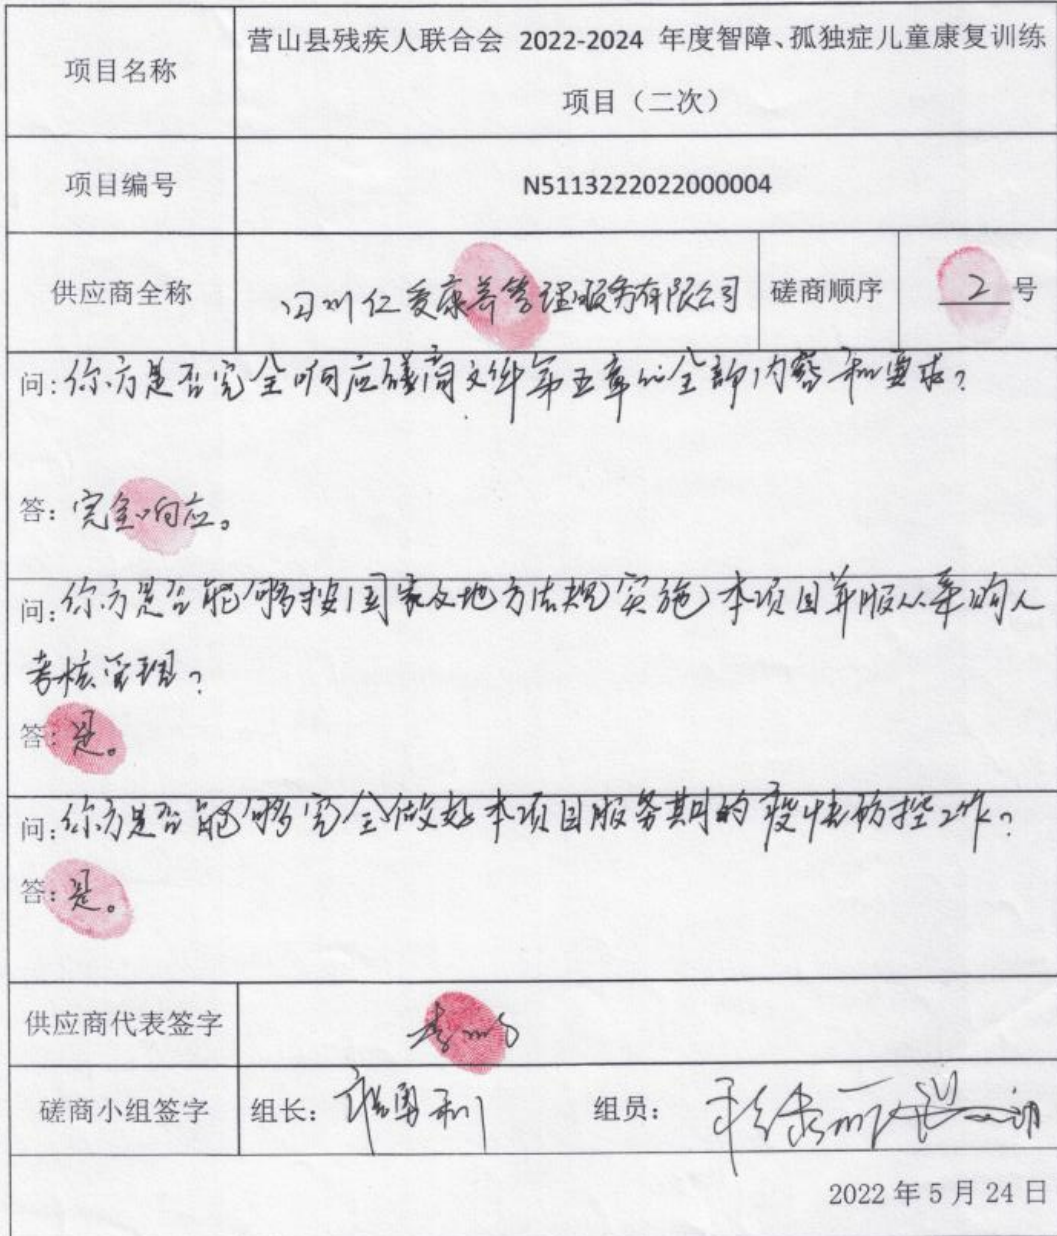 项目名称
营山县残疾人联合会 2022-2024 年度智障、孤独症儿童康复训练
项目（二次）
项目编号
N5113222022000004
供应商全称
四川仁爱康养管理服务有限公司
磋商顺序
2 号
问：你方是否完全响应磋商文件第五章的全部内容和要求？
答：完全响应。
问：你方是否能够按国家及地方法规实施本项目并服从采购人
考核管理？
答：是。
问：你方是否能够完全做好本项目服务期的疫情防控工作？
答：是。
供应商代表签字
磋商小组签字
组长：
组员：
2022 年 5 月 24 日